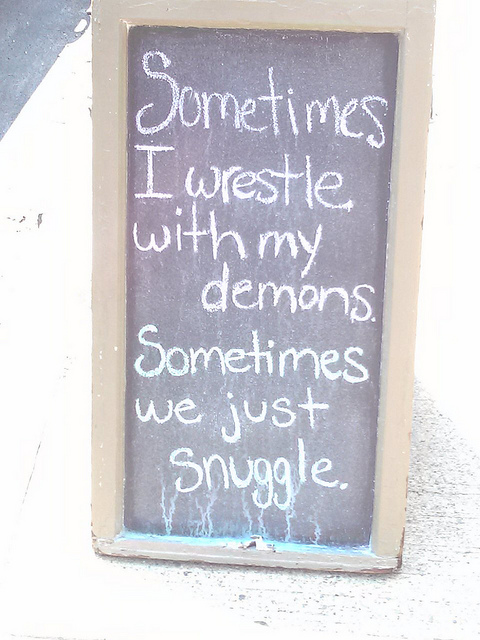 Sometimes
I wrestle
with my
demons.
Sometimes
we just
snuggle.